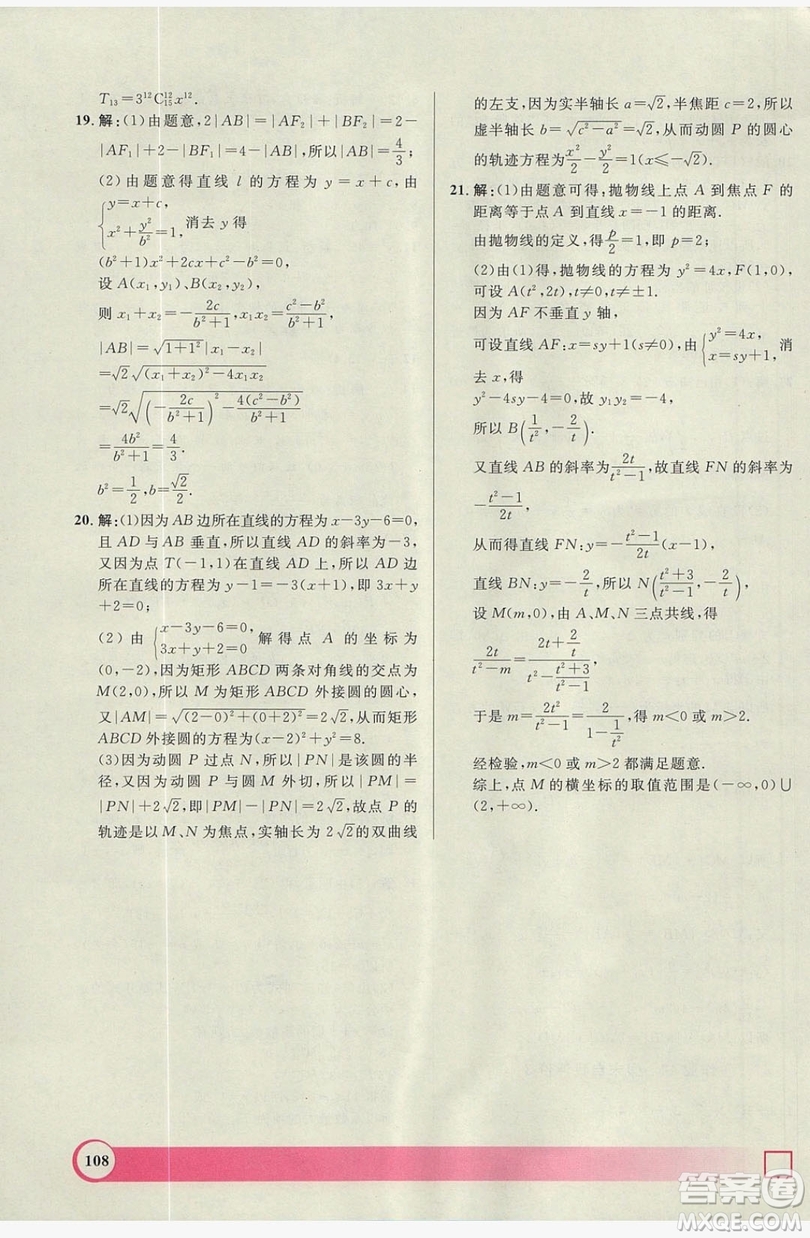 T₁₃=3¹²C₁₅¹²x¹².
19. 解:(1)由题意,2|AB|=|AF₂|+|BF₂|=2-
|AF₁|+2-|BF₁|=4-|AB|,所以|AB|=4/3;
(2)由题意得直线 l 的方程为 y=x+c,由
{y=x+c, x²+y²/b²=1,消去 y 得
(b²+1)x²+2cx+c²-b²=0,
设 A(x₁,y₁)、B(x₂,y₂),
则 x₁+x₂=-2c/(b²+1),x₁x₂=(c²-b²)/(b²+1),
|AB|=√(1+1²)|x₁-x₂|
=√2√((x₁+x₂)²-4x₁x₂)
=√2√((-2c/(b²+1))²-4(c²-b²)/(b²+1))
=4b²/(b²+1)=4/3.
b²=1/2,b=√2/2.
20. 解:(1)因为 AB 边所在直线的方程为 x-3y-6=0,
且 AD 与 AB 垂直,所以直线 AD 的斜率为-3,
又因为点 T(-1,1)在直线 AD 上,所以 AD 边
所在直线的方程为 y-1=-3(x+1),即 3x+y
+2=0;
(2)由{x-3y-6=0, 3x+y+2=0 解得点 A 的坐标为
(0,-2),因为矩形 ABCD 两条对角线的交点为
M(2,0),所以 M 为矩形 ABCD 外接圆的圆心,
又|AM|=√((2-0)²+(0+2)²)=2√2,从而矩形
ABCD 外接圆的方程为(x-2)²+y²=8.
(3)因为动圆 P 过点 N,所以|PN|是该圆的半
径,又因为动圆 P 与圆 M 外切,所以|PM|=
|PN|+2√2,即|PM|-|PN|=2√2,故点 P 的
轨迹是以 M、N 为焦点,实轴长为 2√2的双曲线
的左支,因为实半轴长 a=√2,半焦距 c=2,所以
虚半轴长 b=√(c²-a²)=√2,从而动圆 P 的圆心
的轨迹方程为x²/2-y²/2=1(x≤-√2).
21. 解:(1)由题意可得,抛物线上点 A 到焦点 F 的
距离等于点 A 到直线 x=-1 的距离.
由抛物线的定义,得p/2=1,即 p=2;
(2)由(1)得,抛物线的方程为 y²=4x,F(1,0),
可设 A(t²,2t),t≠0,t≠±1.
因为 AF 不垂直 y 轴,
可设直线 AF:x=sy+1(s≠0),由{y²=4x, x=sy+1,消
去 x 得
y²-4sy-4=0,故 y₁y₂=-4,
所以 B(1/t²,-2/t).
又直线 AB 的斜率为2t/(t²-1),故直线 FN 的斜率为
-(t²-1)/2t.
从而得直线 FN:y=-(t²-1)/2t(x-1),
直线 BN:y=-2/t,所以 N((t²+3)/(t²-1),-2/t),
设 M(m,0),由 A、M、N 三点共线,得
2t/(t²-m)=(2t+2/t)/(t²-(t²+3)/(t²-1)),
于是 m=2t²/(t²-1)=2/(1-1/t²),得 m<0 或 m>2.
经检验,m<0 或 m>2 都满足题意.
综上,点 M 的横坐标的取值范围是(-∞,0)∪
(2,+∞).
108
答案卷
MXQE.COM